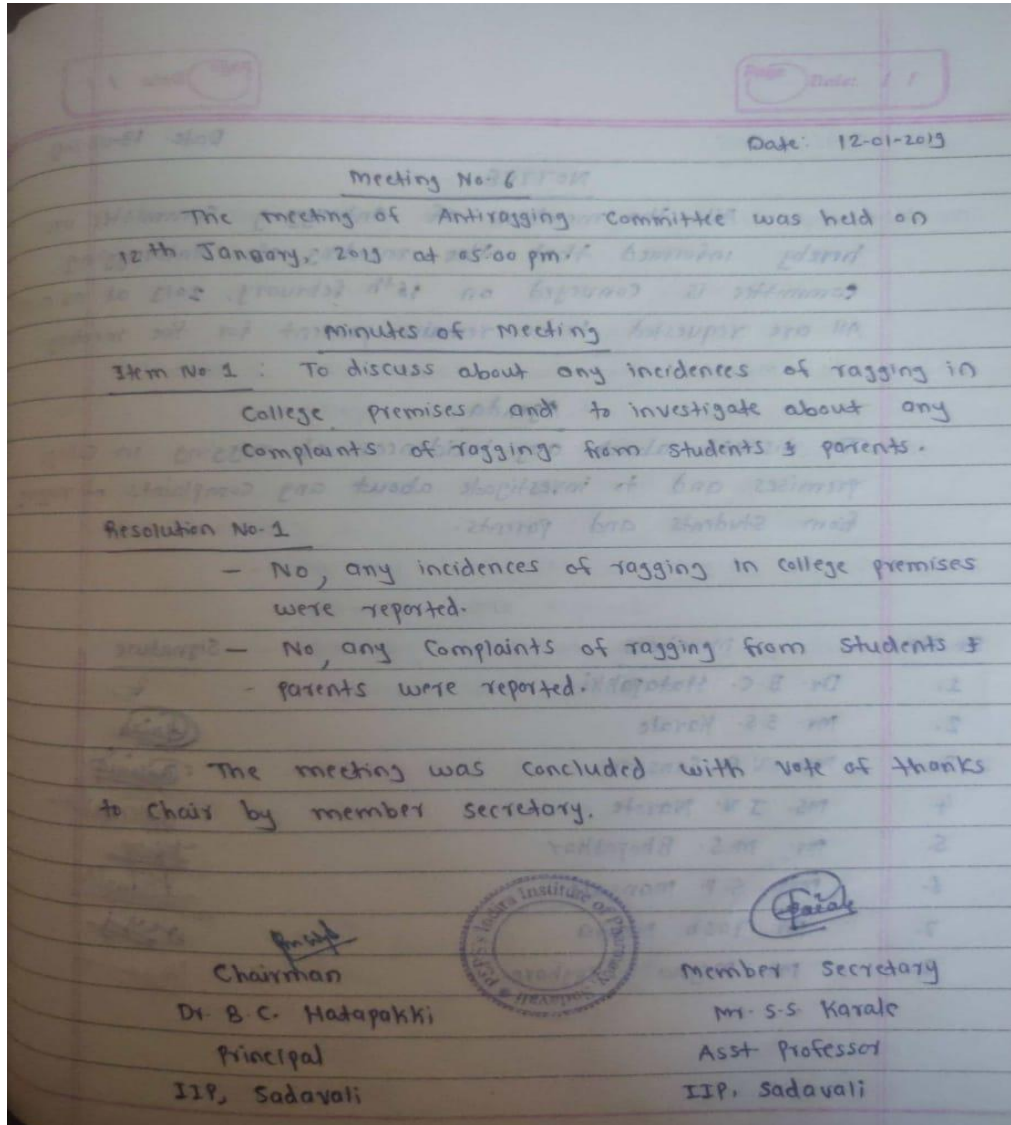 Page Date: / /
Date: 12-01-2019
Meeting No. 6
The meeting of Antiragging Committee was held on
12th January, 2019 at 05:00 pm.
Minutes of Meeting
Item No 1 : To discuss about any incidences of ragging in
College premises and to investigate about any
Complaints of ragging from students & parents.
Resolution No. 1
- No, any incidences of ragging in college premises
were reported.
- No, any Complaints of ragging from Students &
- parents were reported.
The meeting was concluded with vote of thanks
to Chair by member secretary.
P.S.P.S's Indira Institute of Pharmacy, Sadavali
Chairman
Member Secretary
Dr. B.C. Hatapakki
Mr. S.S. Karale
Principal
Asst Professor
IIP, Sadavali
IIP, Sadavali